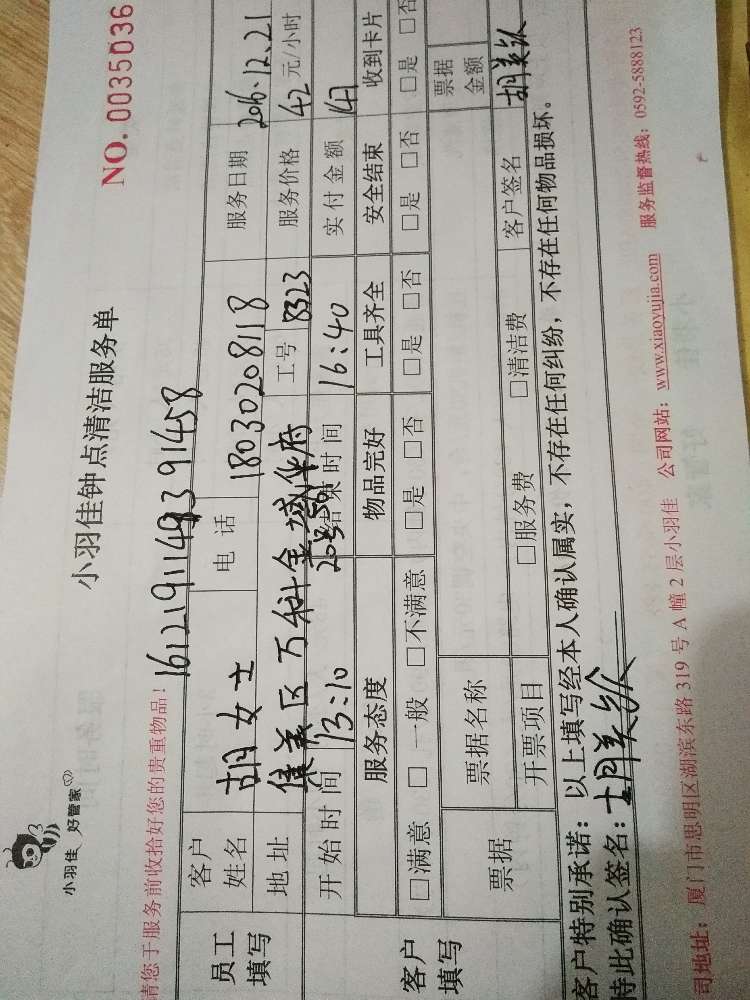 小羽佳 好管家
小羽佳钟点清洁服务单
NO. 0035036
请您于服务前收拾好您的贵重物品！
161219114939 1458
员工填写 客户姓名 胡女士 电话 18030208118 服务日期 2016.12.21
地址 集美区万科金域华府 工号 8323 服务价格 42 元/小时
开始时间 13:10 结束时间 16:40 实付金额 147
客户填写 服务态度 物品完好 工具齐全 安全结束 收到卡片
□满意 □一般 □不满意 □是 □否 □是 □否 □是 □否 □是 □否
票据 票据名称 票据金额
开票项目 □服务费 □清洁费 客户签名
客户特别承诺：以上填写经本人确认属实，不存在任何纠纷，不存在任何物品损坏。
特此确认签名：
司地址：厦门市思明区湖滨东路319号A幢2层小羽佳 公司网站：www.xiaoyujia.com 服务监督热线：0592-5888123